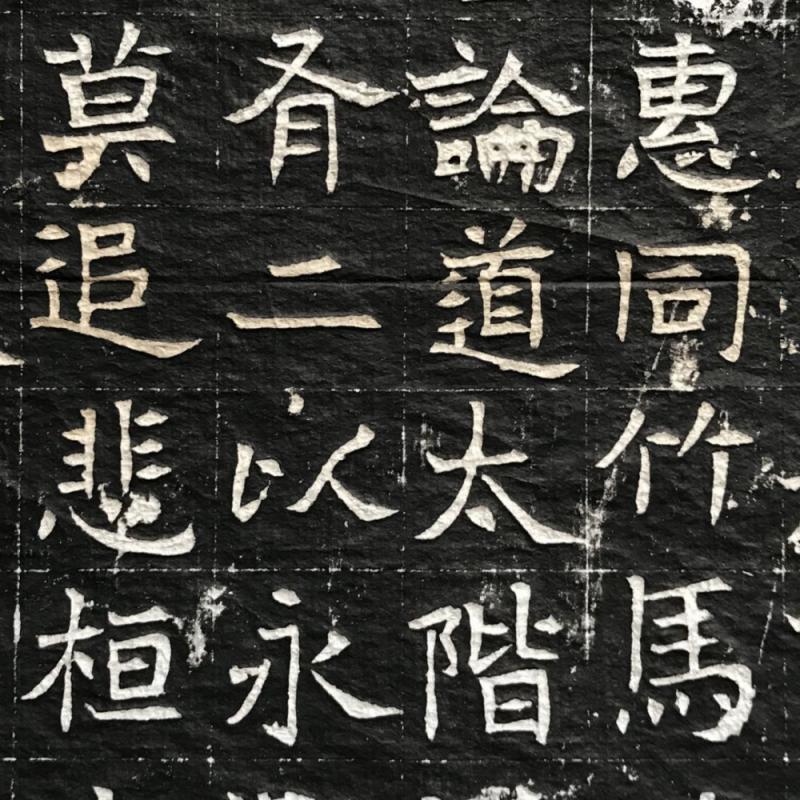 惠同竹馬
論道太階
有二以永
莫追悲桓